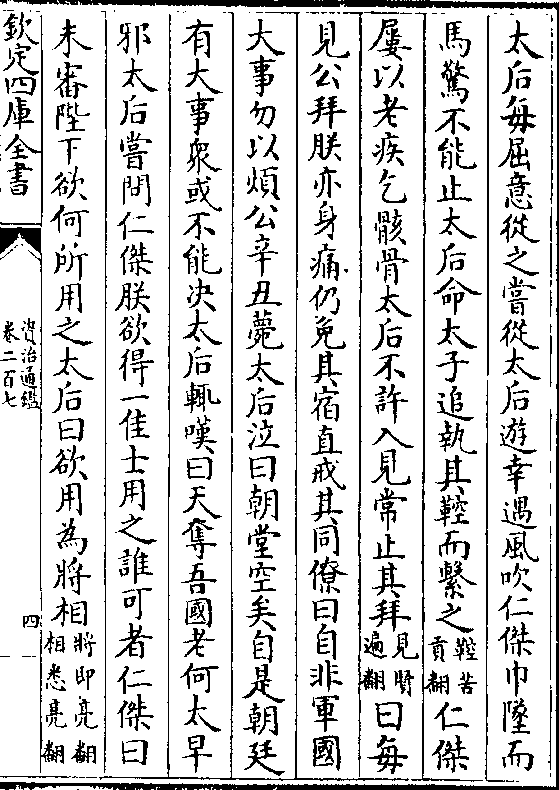 太后每屈意從之嘗從太后遊幸遇風吹仁傑巾墜而
馬驚不能止太后命太子追執其鞚而繫之鞚苦貢翻仁傑
屢以老疾乞骸骨太后不許入見常止其拜見賢遍翻曰每
見公拜朕亦身痛仍免其宿直戒其同僚曰自非軍國
大事勿以煩公辛丑薨太后泣曰朝堂空矣自是朝廷
有大事衆或不能决太后輒嘆曰天奪吾國老何太早
邪太后嘗問仁傑朕欲得一佳士用之誰可者仁傑曰
未審陛下欲何所用之太后曰欲用為將相將即亮翻相悉亮翻
欽定四庫全書
資治通鑑
卷二百七
四